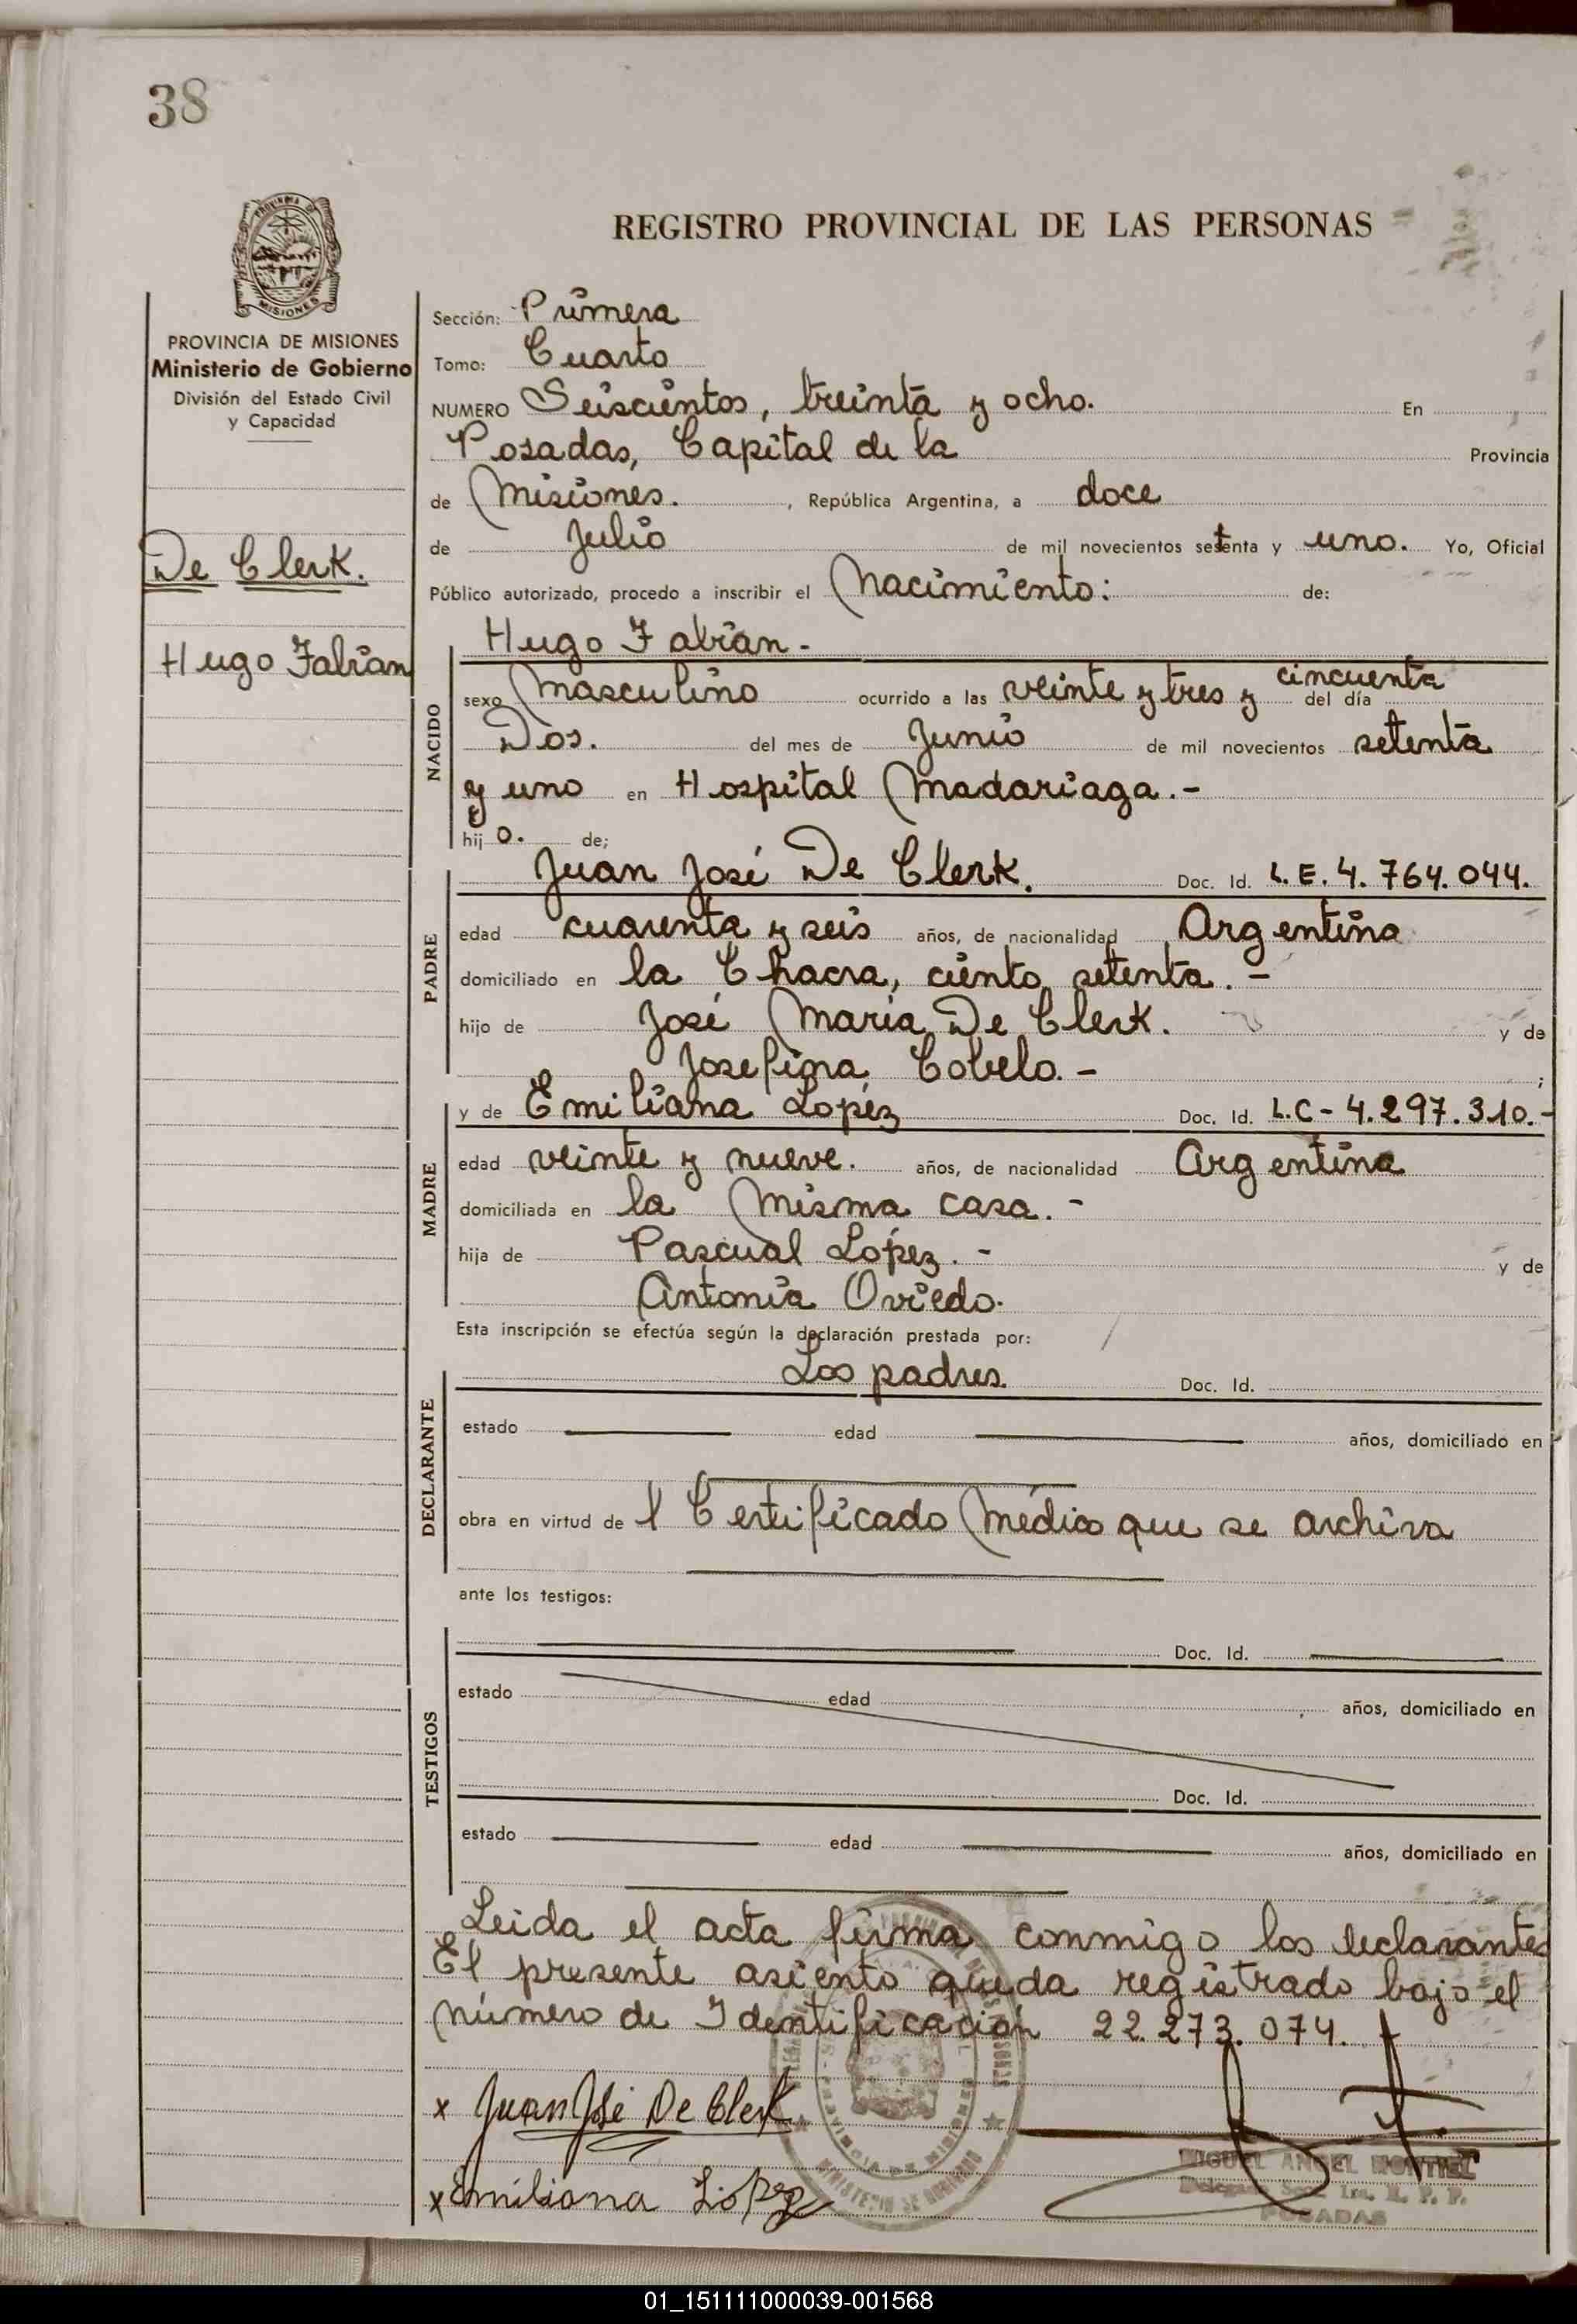 38
PROVINCIA DE MISIONES
Ministerio de Gobierno
División del Estado Civil
y Capacidad
De Clerk.
Hugo Fabian
REGISTRO PROVINCIAL DE LAS PERSONAS
Sección: Primera
Tomo: Cuarto
NUMERO Seiscientos, treinta y ocho. En
Posadas, Capital de la Provincia
de Misiones. , República Argentina, a doce
de Julio de mil novecientos setenta y uno. Yo, Oficial
Público autorizado, procedo a inscribir el Nacimiento: de:
Hugo Fabian -
NACIDO
sexo Masculino ocurrido a las veinte y tres y cincuenta del día
Dos. del mes de Junio de mil novecientos setenta
y uno en Hospital Madariaga.-
hijo. de;
PADRE
Juan José De Clerk. Doc. Id. L.E. 4.764.044.
edad cuarenta y seis años, de nacionalidad Argentina
domiciliado en la Chacra, ciento setenta. -
hijo de José María De Clerk. y de
Josefina Cobelo. - ;
MADRE
y de Emiliana López Doc. Id. L.C- 4.297.310.-
edad veinte y nueve. años, de nacionalidad Argentina
domiciliada en la Misma casa. -
hija de Pascual López. - y de
Antonia Oviedo.
Esta inscripción se efectúa según la declaración prestada por:
DECLARANTE
Los padres. Doc. Id.
estado edad años, domiciliado en
obra en virtud de l Certificado Médico que se archiva
ante los testigos:
TESTIGOS
Doc. Id.
estado edad años, domiciliado en
Doc. Id.
estado edad años, domiciliado en
Leida el acta firma conmigo los declarantes
El presente asiento queda registrado bajo el
número de Identificación 22.273.074.
x Juan José De Clerk
x Emiliana López
MIGUEL ANGEL MONTIEL
POSADAS
01_151111000039-001568